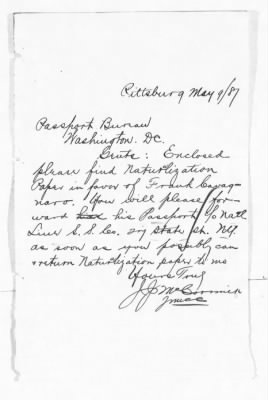 Pittsburg May 9/87
Passport Bureau
Washington. DC.
Gents: Enclosed
please find Naturlization
Paper in favor of Frank Cavag-
naro. You will please for-
ward his Passport c/o Natl
Line S. S. Co. 27 State St. N.Y.
as soon as you possibly can
& return Naturlization paper to me
Yours Truly
J J McCormick